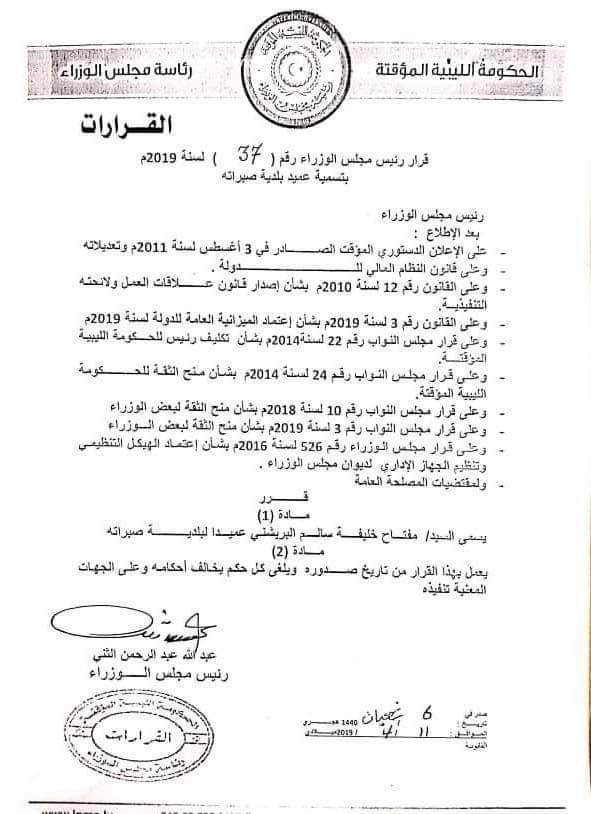 الحكومة الليبية المؤقتة
رئاسة مجلس الوزراء
القرارات
قرار رئيس مجلس الوزراء رقم ( 37 ) لسنة 2019م
بتسمية عميد بلدية صبراته
رئيس مجلس الوزراء
بعد الإطلاع :
- على الإعلان الدستوري المؤقت الصادر في 3 أغسطس لسنة 2011م وتعديلاته
- وعلى قانون النظام المالي للدولة .
- وعلى القانون رقم 12 لسنة 2010م بشأن إصدار قانون علاقات العمل ولائحته
التنفيذية.
- وعلى القانون رقم 3 لسنة 2019م بشأن إعتماد الميزانية العامة للدولة لسنة 2019م
- وعلى قرار مجلس النواب رقم 22 لسنة 2014م بشأن تكليف رئيس للحكومة الليبية
المؤقتة.
- وعلى قرار مجلس النواب رقم 24 لسنة 2014م بشأن منح الثقة للحكومة
الليبية المؤقتة.
- وعلى قرار مجلس النواب رقم 10 لسنة 2018م بشأن منح الثقة لبعض الوزراء
- وعلى قرار مجلس النواب رقم 3 لسنة 2019م بشأن منح الثقة لبعض الوزراء
- وعلى قرار مجلس الوزراء رقم 526 لسنة 2016م بشأن إعتماد الهيكل التنظيمي
وتنظيم الجهاز الإداري لديوان مجلس الوزراء .
- ولمقتضيات المصلحة العامة
قرر
مادة (1)
يسمى السيد/ مفتاح خليفة سالم البريشني عميدا لبلدية صبراته
مادة (2)
يعمل بهذا القرار من تاريخ صدوره ويلغى كل حكم يخالف أحكامه وعلى الجهات
المعنية تنفيذه
عبد الله عبد الرحمن الثني
رئيس مجلس الوزراء
الحكومة الليبية المؤقتة
القرارات
رئاسة مجلس الوزراء
صدر في
تاريخ : 6 شعبان 1440 هجري
الموافق : 11 / 4 / 2019 ميلادي